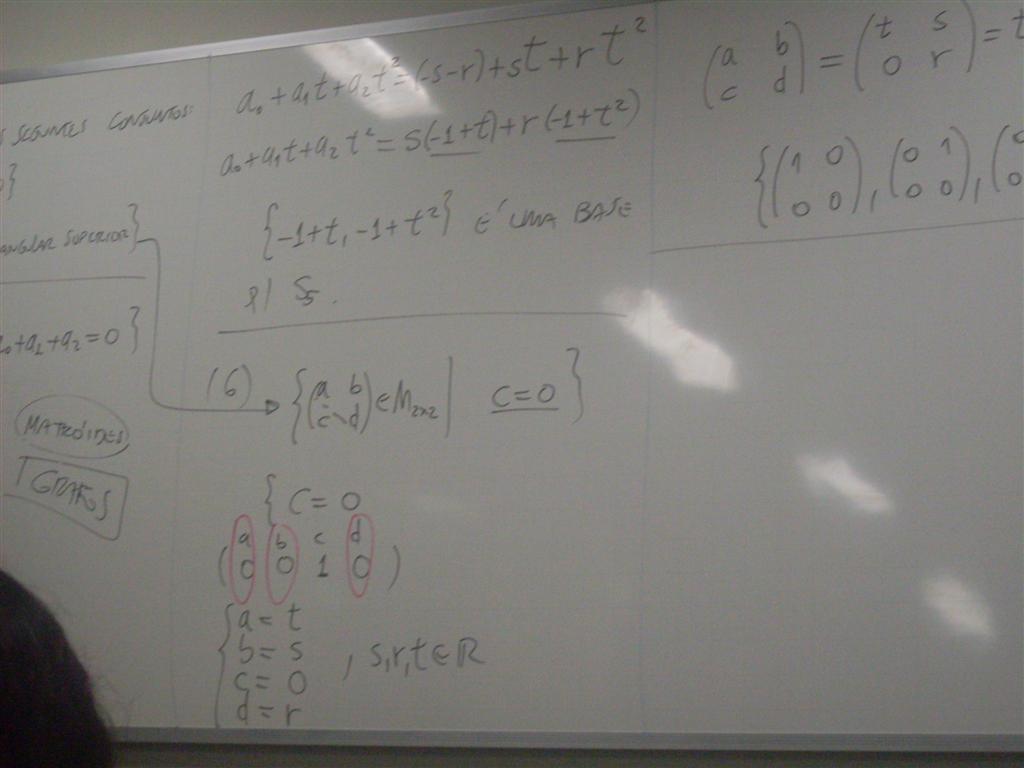 SEGUINTES CONJUNTOS:
}
ANGULAR SUPERIOR}
a₀+a₁+a₂=0}
MATRÓIDES
GRAFOS
a₀+a₁t+a₂t²=(-s-r)+st+rt²
a₀+a₁t+a₂t²=s(-1+t)+r(-1+t²)
{-1+t, -1+t²} É UMA BASE
p/ S₅.
(6) {(a b
c d) ∈ M₂ₓ₂ | c=0}
{ c=0
a b c d
(0 0 1 0)
{ a=t
b=s , s,r,t∈ℝ
c=0
d=r
(a b
c d) = (t s
0 r) = t
{(1 0
0 0), (0 1
0 0), (0
0